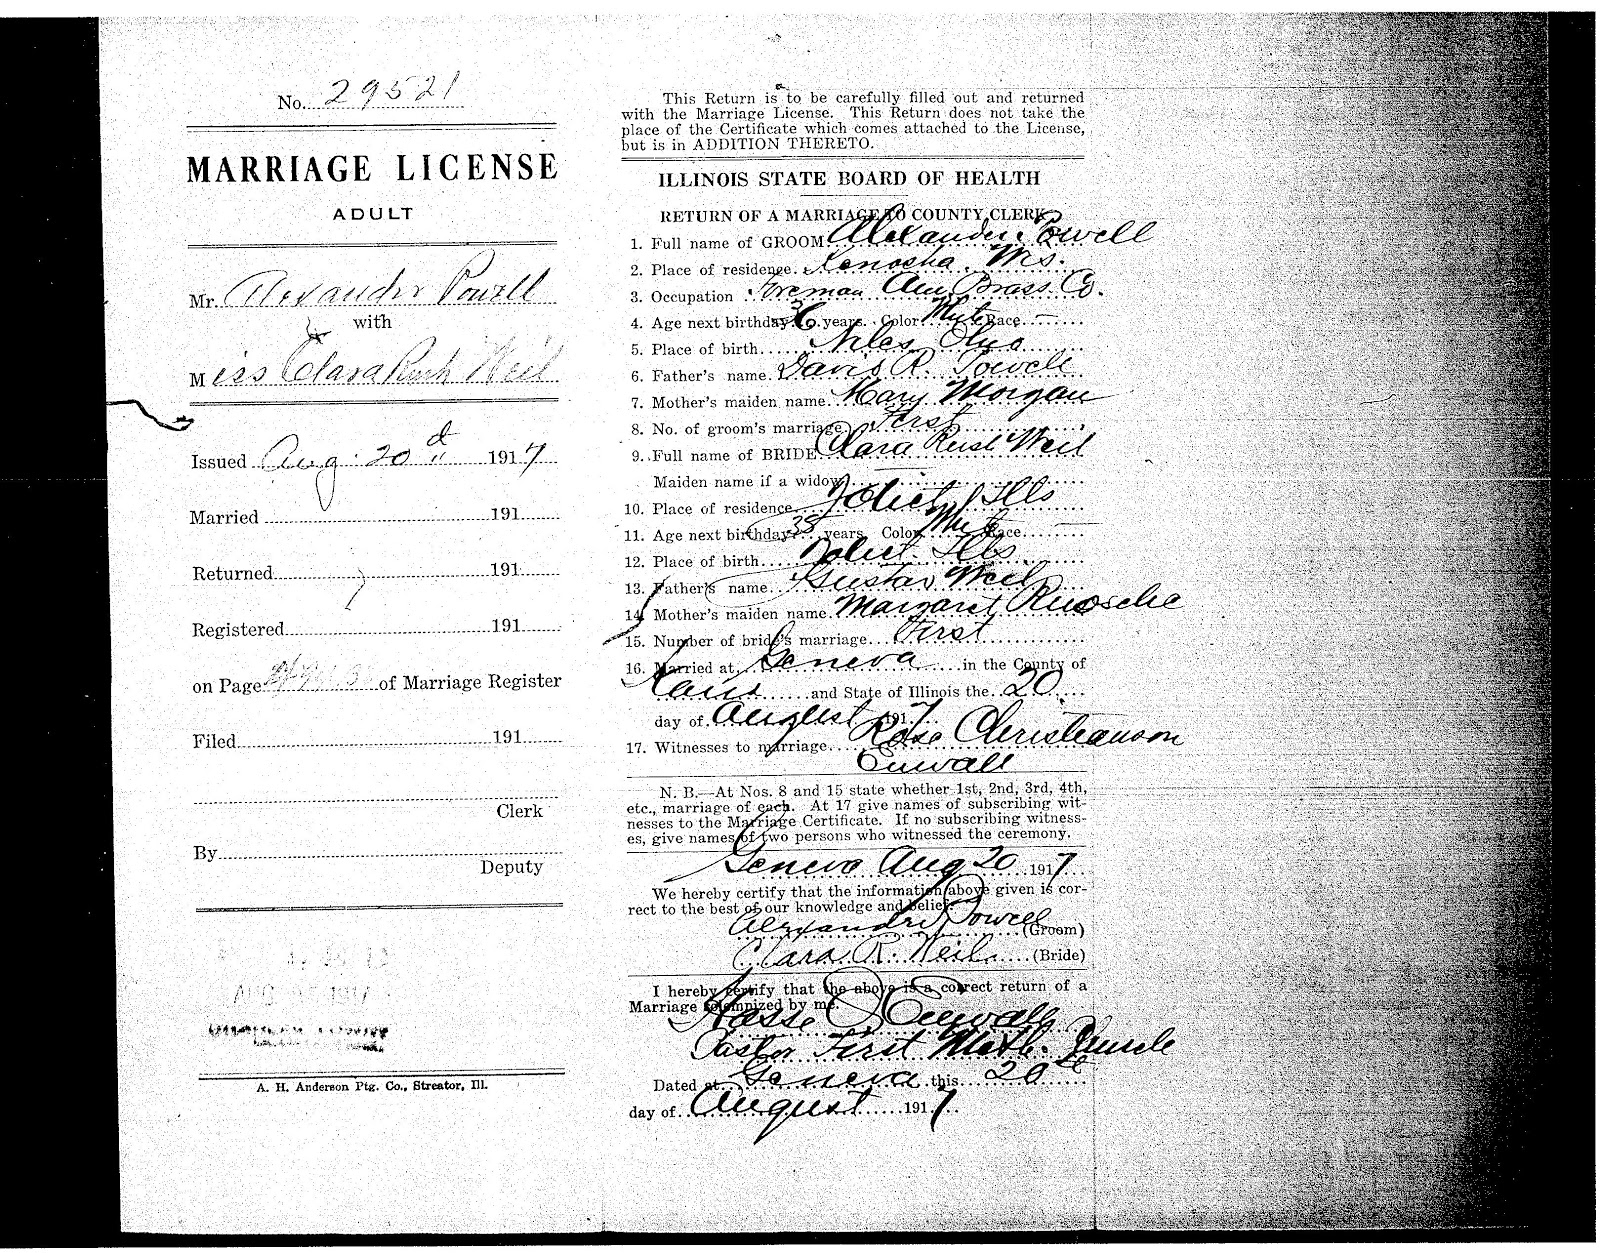 No. 29521
MARRIAGE LICENSE
ADULT
Mr. Alexander Powell
with
Miss Clara Rush Weil
Issued Aug. 20th 1917
Married 191
Returned 191
Registered 191
on Page of Marriage Register
Filed 191
Clerk
By
Deputy
A. H. Anderson Ptg. Co., Streator, Ill.
This Return is to be carefully filled out and returned
with the Marriage License. This Return does not take the
place of the Certificate which comes attached to the License,
but is in ADDITION THERETO.
ILLINOIS STATE BOARD OF HEALTH
RETURN OF A MARRIAGE TO COUNTY CLERK
1. Full name of GROOM Alexander Powell
2. Place of residence Kenosha. Wis.
3. Occupation Foreman Am Brass Co.
4. Age next birthday 36 years. Color White Race —
5. Place of birth Niles Ohio
6. Father's name David R. Powell
7. Mother's maiden name Mary Morgan
8. No. of groom's marriage First
9. Full name of BRIDE Clara Rush Weil
Maiden name if a widow
10. Place of residence Joliet Ills
11. Age next birthday 38 years. Color White Race —
12. Place of birth Joliet. Ills
13. Father's name Gustav Weil
14. Mother's maiden name Margaret
15. Number of bride's marriage First
16. Married at Geneva in the County of
Kane and State of Illinois the 20
day of August 1917
17. Witnesses to marriage Rose Christianson
N. B.—At Nos. 8 and 15 state whether 1st, 2nd, 3rd, 4th,
etc., marriage of each. At 17 give names of subscribing wit-
nesses to the Marriage Certificate. If no subscribing witness-
es, give names of two persons who witnessed the ceremony.
Geneva Aug 20 1917
We hereby certify that the information above given is cor-
rect to the best of our knowledge and belief.
Alexander Powell (Groom)
Clara R. Weil (Bride)
I hereby certify that the above is a correct return of a
Marriage solemnized by me.
Pastor First Meth. Church
Dated at Geneva this 20th
day of August 1917